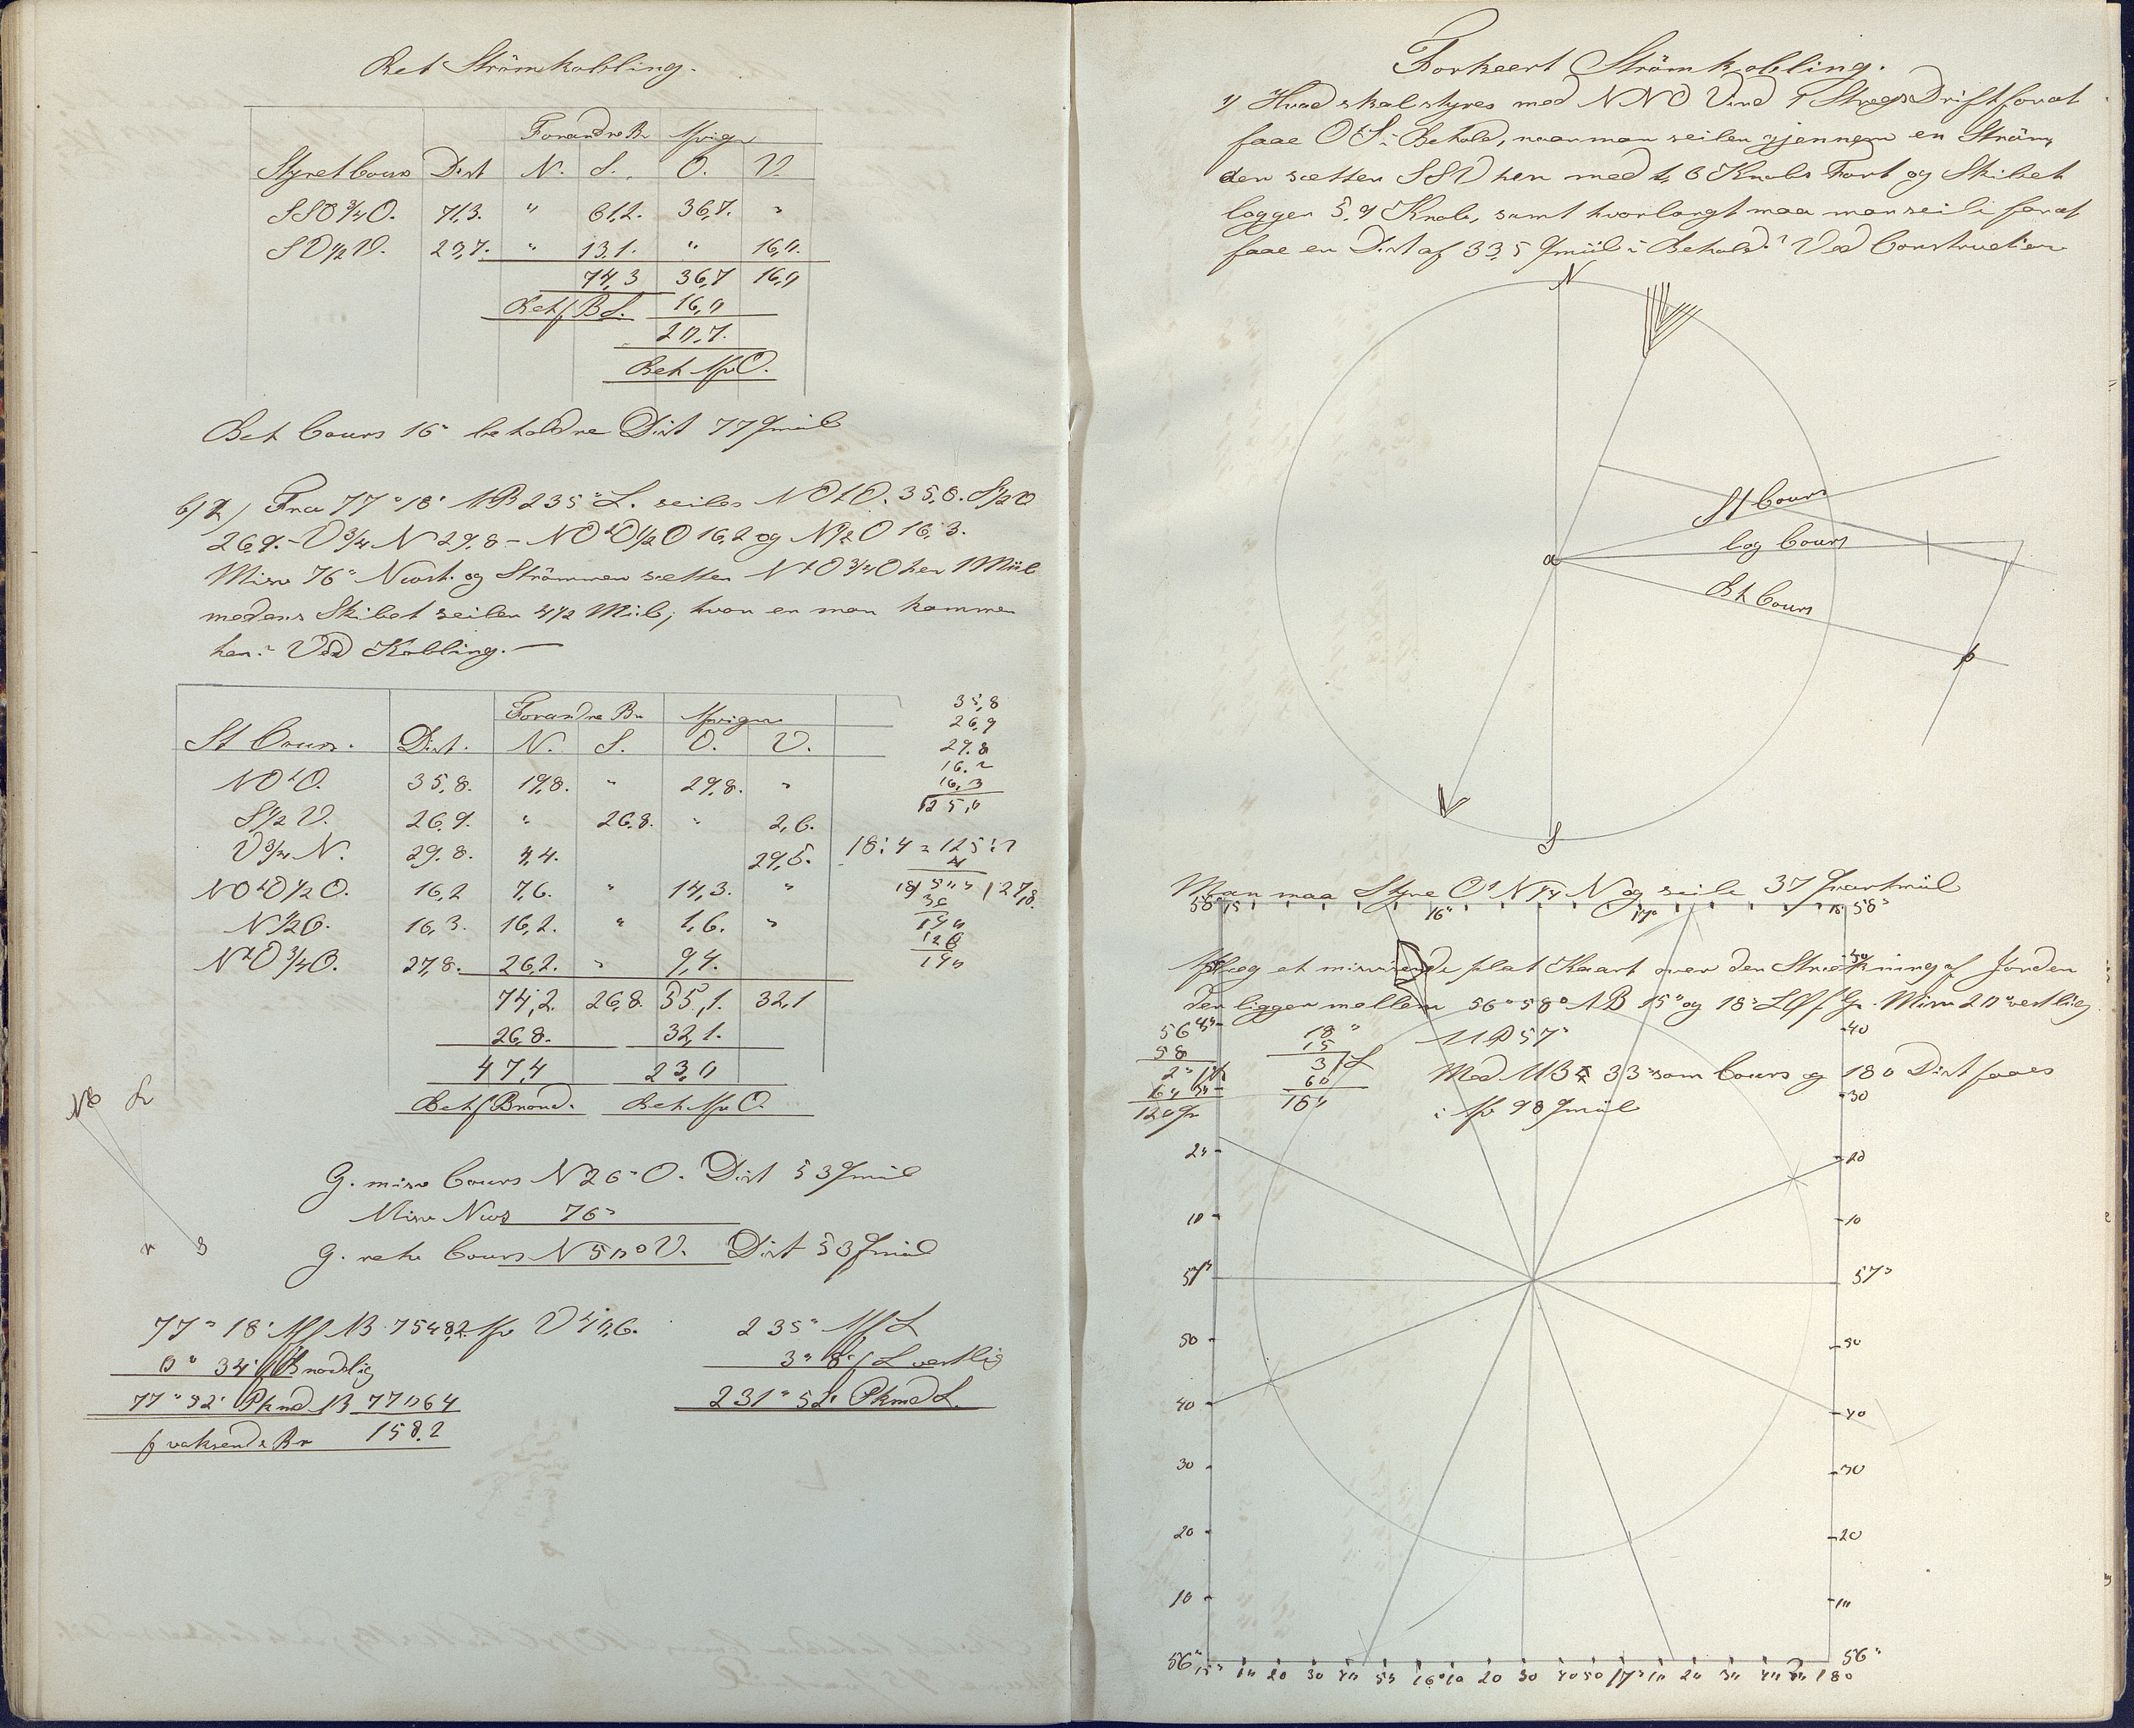 Ret Strömkobling.
Forandre Br Afviger
Styret Cours Dist N. S. O. V.
SSO ¾ O. 71,3. " 61,2. 36,7. "
SV ½ V. 23,7. " 13,1. " 16,0.
74,3 36,7 16,0
Beh f B S. 16,0
20,7.
Beh Afv O.
Beh Cours 16° beholdne Dist 77 Qmiil
Fra 77° 18' NB 235° L. seiles NOtO. 35,8. S½V
26,9. - V ¾ N 29,8 - NOtO½O 16,2 og N½O 16,3.
Misv 76° Nvest. og Strömmen sætter NtO¾O hen 1 Miil
medens Skibet seiler 4½ Miil; hvor er man kommen
hen? Ved Kobling. —
Forandre Br Afviger
St Cours. Dist. N. S. O. V.
NOtO. 35,8. 19,8. " 29,8. "
S½V. 26,9. " 26,8. " 2,6.
V¾N. 29,8. 4,4. 29,5.
NOtO½O. 16,2 7,6. " 14,3. "
N½O. 16,3. 16,2. " 1,6. "
NtO¾O. 27,8. 26,2. " 9,4.
74,2. 26,8. 55,1. 32,1
26,8. 32,1.
47,4 23,0
Beh f B nord. Beh Afv O.
35,8
26,9
29,8
16,2
16,3
125,0
18 : 4 = 125 : ?
4
18/500/27,8
36
140
126
140
G. misv Cours N 26° O. Dist 53 Qmiil
Misv Nvest 76°
G. retv Cours N 50° V. Dist 53 Qmiil
77° 18' Aff NB 7548,2 Afv V 40,6.
0° 34' f B nordlig
77° 52' Pkmd B 7706,4
f voksende Br 158,2
235° Aff L
3° 8' f L vestlig
231° 52' Pkmd L.
Forkeert Strömkobling.
1) Hvad skal styres med NNO Vind 1 Stregs Drift for at
faae OtS i Behold, naar man seiler gjennem en Ström,
der sætter SSV hen med 1,6 Knobs Fart og Skibet
logger 5,9 Knob, samt hvor langt maa man seile for at
faae en Dist af 33,5 Qmiil i Behold? Ved Construction
N
St Cours
a
log Cours
Bh Cours
b
S
Man maa Styre OtN ¼ N og seile 37 Qvartmiil
58° 15 16° 17° 18 58°
Aflæg et misvisende plat Kaart over den Strækning af Jorden
der ligger mellem 56° 58° NB 15° og 18° L Misv 20° vestlig
56° 18° MB 57°
58 15
2° 3° L
60 60
120 180
Med MB 33° som Cours og 180 Dist faaes
i Afv 98 Qmiil
50
40
30
20 20
10 10
57° 57°
50 50
40 40
30 30
20 20
10 10
56° 56°
15° 10 20 30 40 50 16° 10 20 30 40 50 17° 10 20 30 40 50 18°